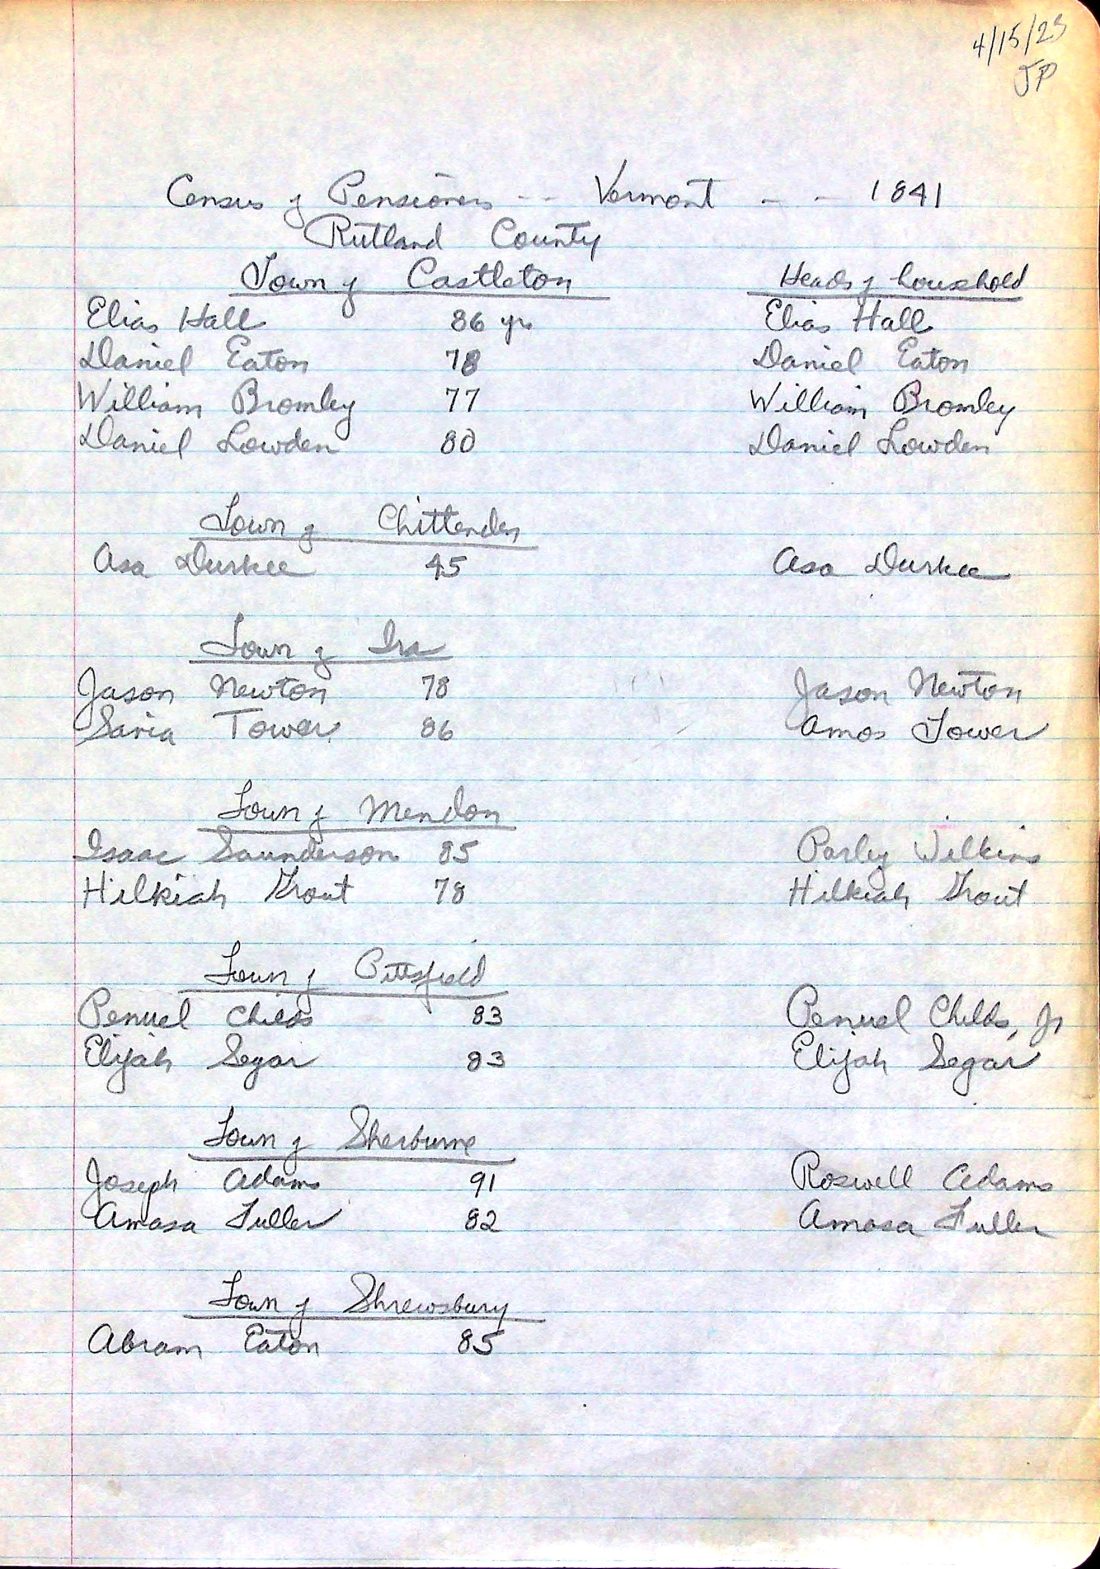 4/15/23
JP
Census of Pensioners -- Vermont -- 1841
Rutland County
Town of Castleton Heads of household
Elias Hall 86 yrs Elias Hall
Daniel Eaton 78 Daniel Eaton
William Bromley 77 William Bromley
Daniel Lowden 80 Daniel Lowden
Town of Chittenden
Asa Durkee 45 Asa Durkee
Town of Ira
Jason Newton 78 Jason Newton
Tower 86 Amos Tower
Town of Mendon
Isaac Saunderson 85 Parley Wilkins
Hilkiah Grout 78 Hilkiah Grout
Town of Pittsfield
Penuel Childs 83 Penuel Childs, Jr
Elijah Segar 83 Elijah Segar
Town of Sherburne
Joseph Adams 91 Roswell Adams
Amasa Fuller 82 Amasa Fuller
Town of Shrewsbury
Abram Eaton 85